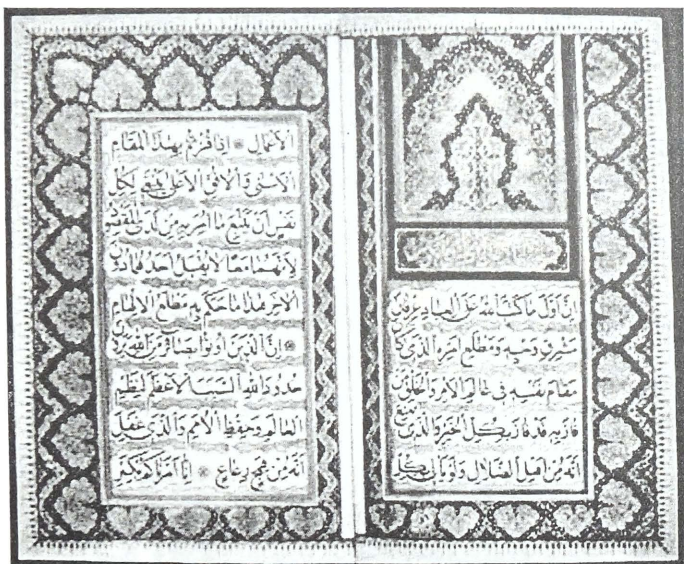 اِنَّ اَوَّلَ ما كَتَبَ اللهُ عَلَى العِبادِ عِرفانُ
مَشرِقِ وَحيِهِ وَمَطلَعِ اَمرِهِ الَّذي كانَ
مَقامَ نَفسِهِ في عالَمِ الاَمرِ وَالخَلقِ مَن
فازَ بِهِ قَد فازَ بِكُلِّ الخَيرِ وَالَّذي مُنِعَ
اِنَّهُ مِن اَهلِ الضَّلالِ وَلَو يَأتي بِكُلِّ
الاَعمالِ * اِذا فُزتُم بِهذَا المَقامِ
الاَسنى وَالاُفُقِ الاَعلى يَنبَغي لِكُلِّ
نَفسٍ اَن يَتَّبِعَ ما اُمِرَ بِهِ مِن لَدَى المَقصُودِ
لِاَنَّهُما مَعاً لا يُقبَلُ اَحَدُهُما دُونَ
الآخَرِ هذا ما حَكَمَ بِهِ مَطلَعُ الاِلهامِ
* اِنَّ الَّذينَ اُوتُوا بَصائِرَ مِنَ اللهِ يَرَونَ
حُدُودَ اللهِ السَّبَبَ الاَعظَمَ لِنَظمِ
العالَمِ وَحِفظِ الاُمَمِ وَالَّذي غَفَلَ
اِنَّهُ مِن هَمَجٍ رَعاعٍ * اِنّا اَمَرناكُم بِكَسرِ